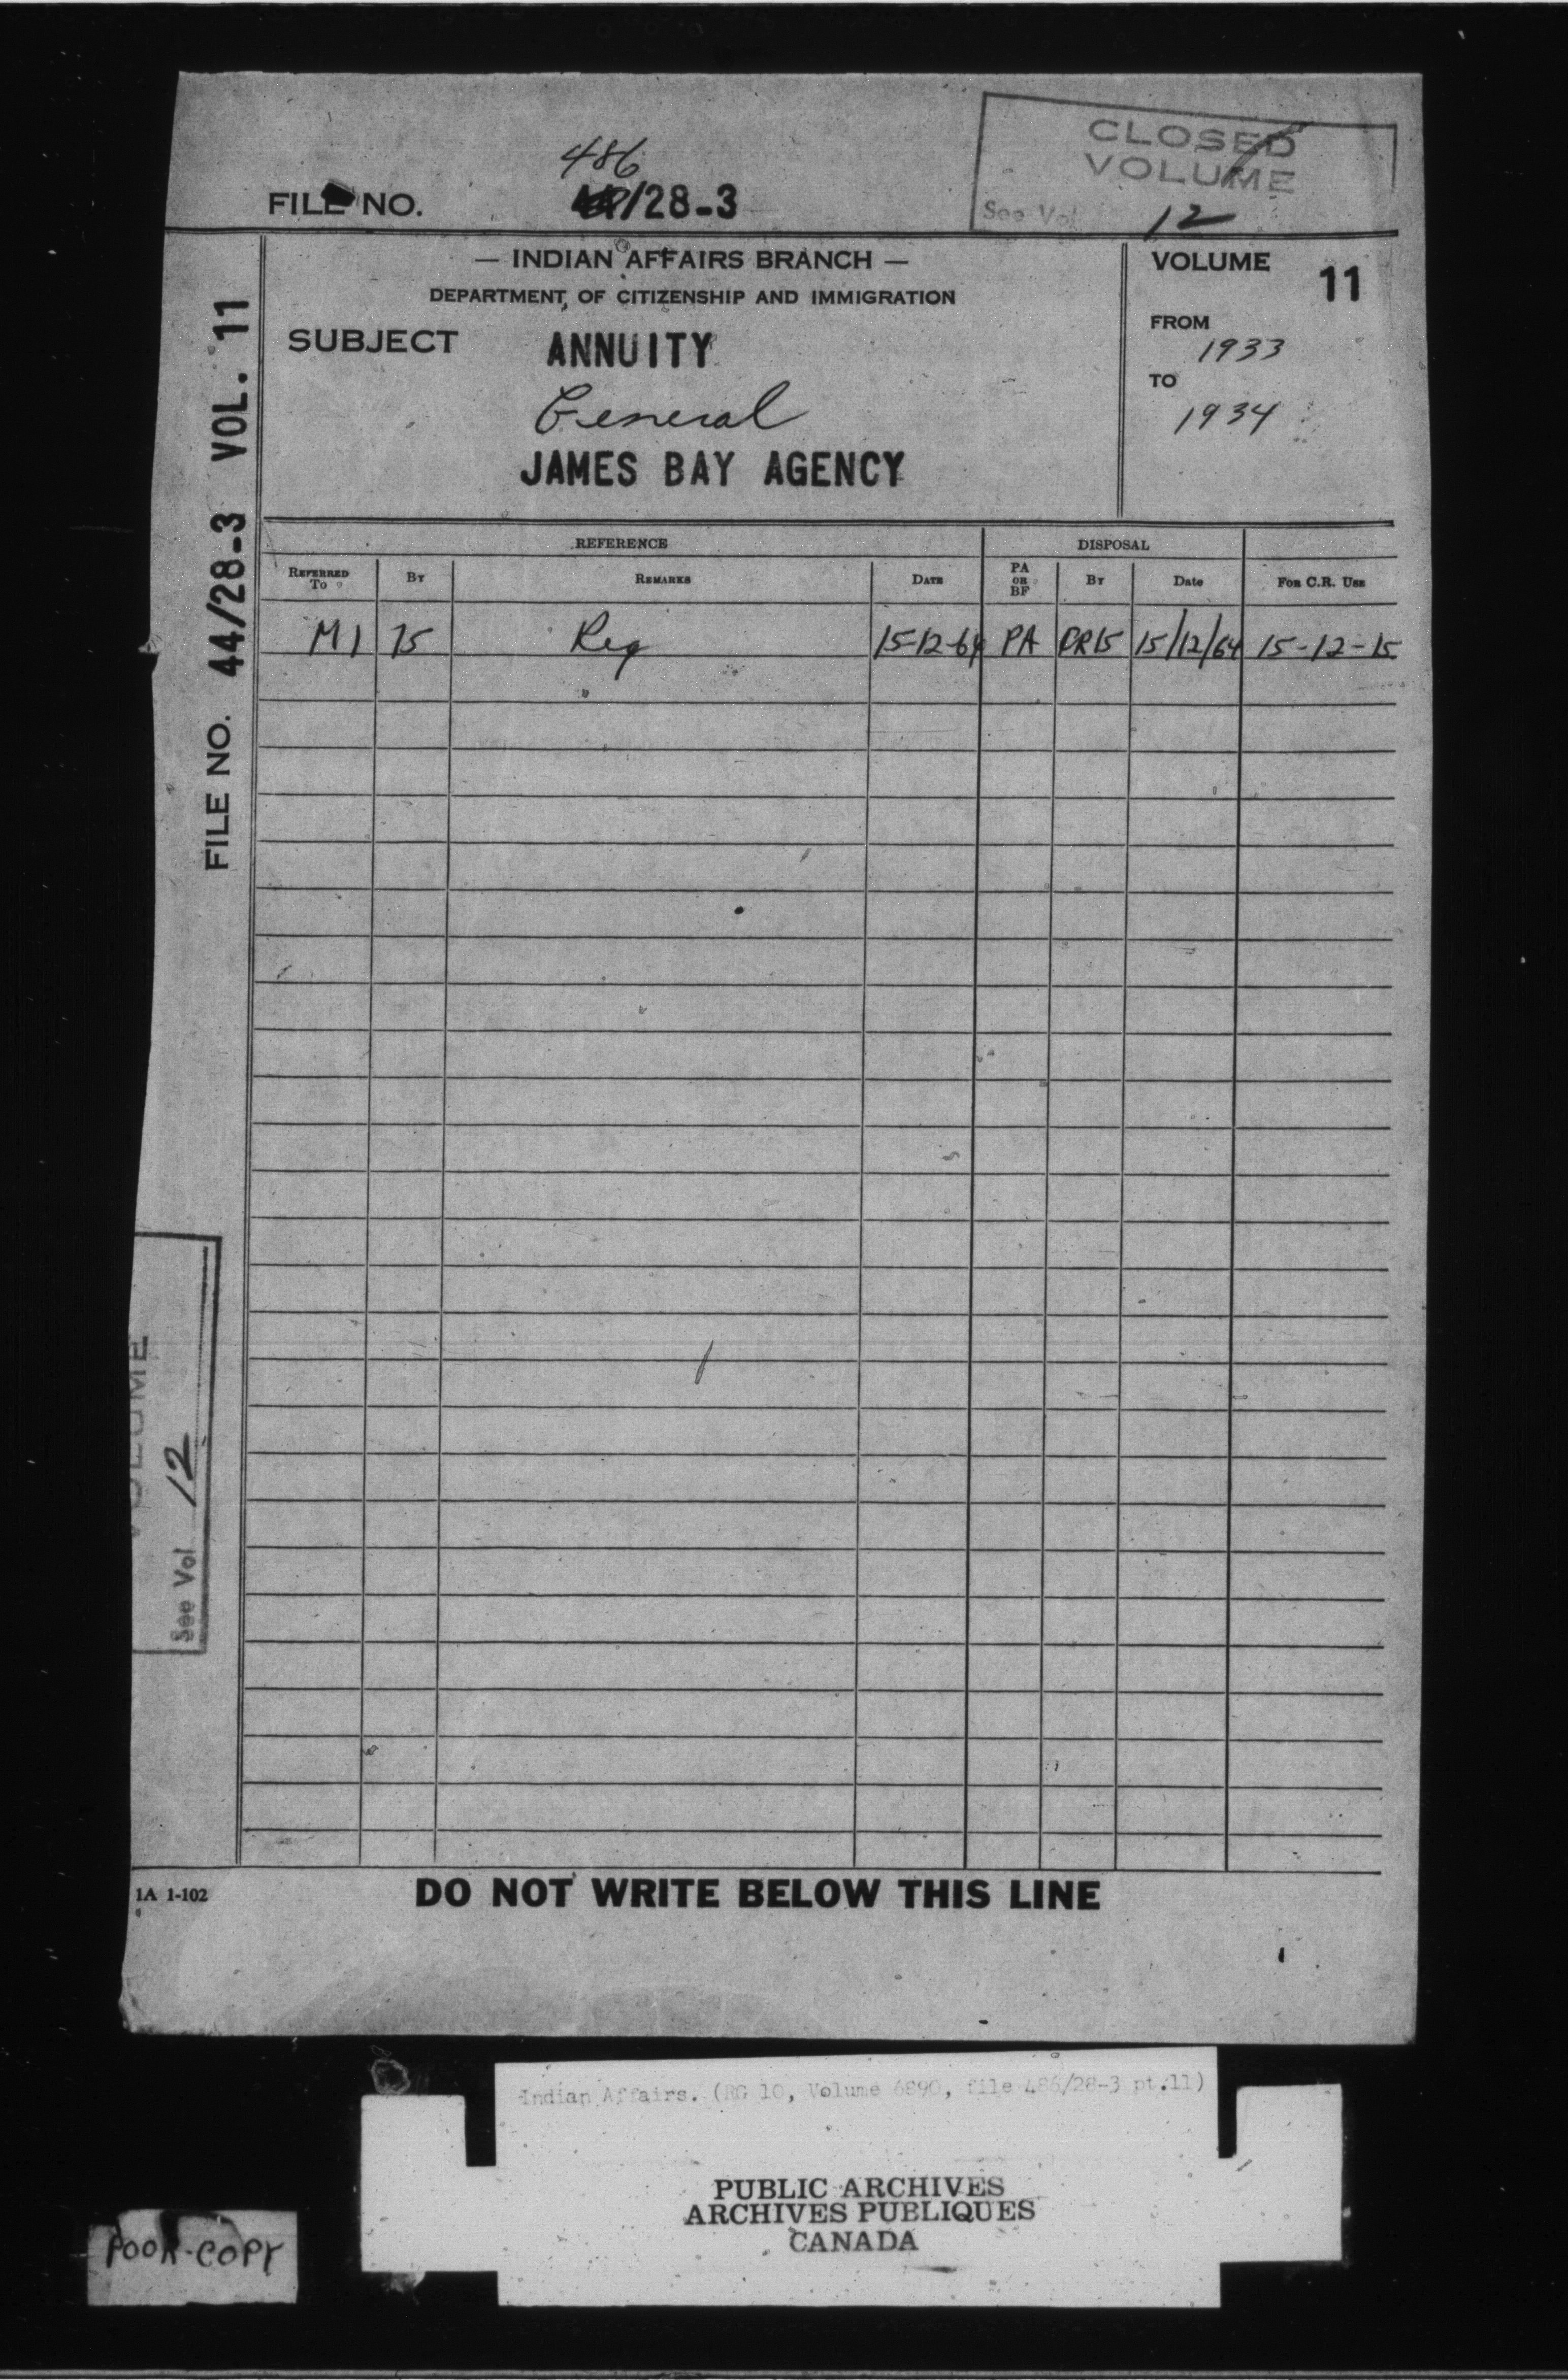 486
FILE NO. /28-3
CLOSED
VOLUME
See Vol 12
— INDIAN AFFAIRS BRANCH —
DEPARTMENT OF CITIZENSHIP AND IMMIGRATION
SUBJECT ANNUITY
General
JAMES BAY AGENCY
VOLUME 11
FROM
1933
TO
1934
FILE NO. 44/28-3 VOL. 11
REFERENCE DISPOSAL
REFERRED TO BY REMARKS DATE PA OR BF BY Date FOR C.R. USE
M1 75 Req 15-12-64 PA CR15 15/12/64 15-12-15
VOLUME
See Vol 12
1A 1-102
DO NOT WRITE BELOW THIS LINE
Indian Affairs. (RG 10, Volume 6890, file 486/28-3 pt.11)
PUBLIC ARCHIVES
ARCHIVES PUBLIQUES
CANADA
POOR COPY